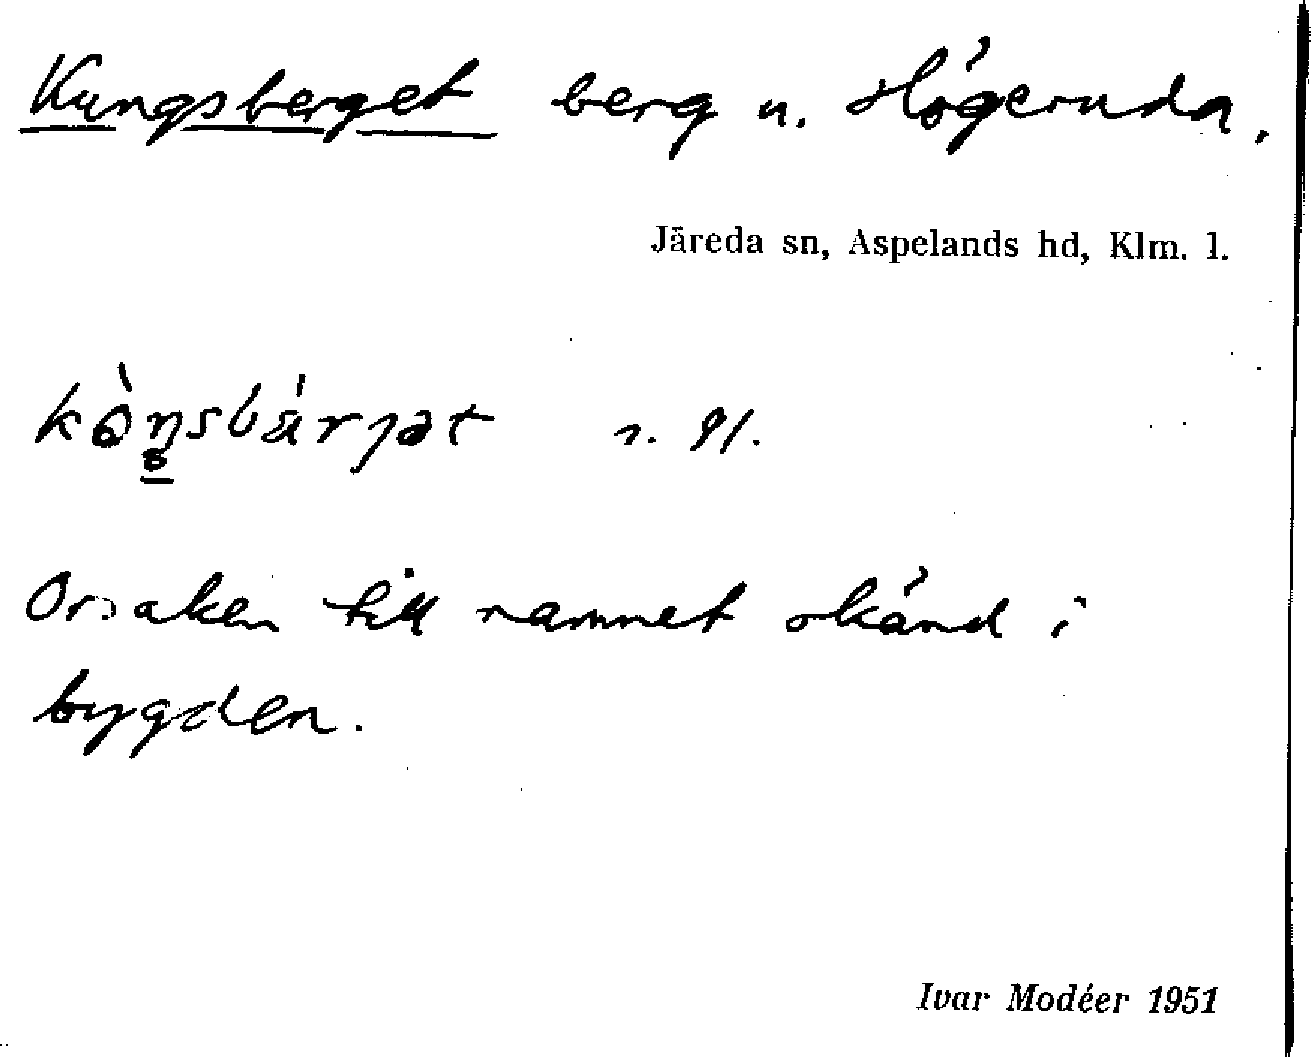 Kungsberget berg u. Högeruda.
Järeda sn, Aspelands hd, Klm. l.
kòŋsbárjət
Orsaken till namnet okänd i
bygden.
Ivar Modéer 1951